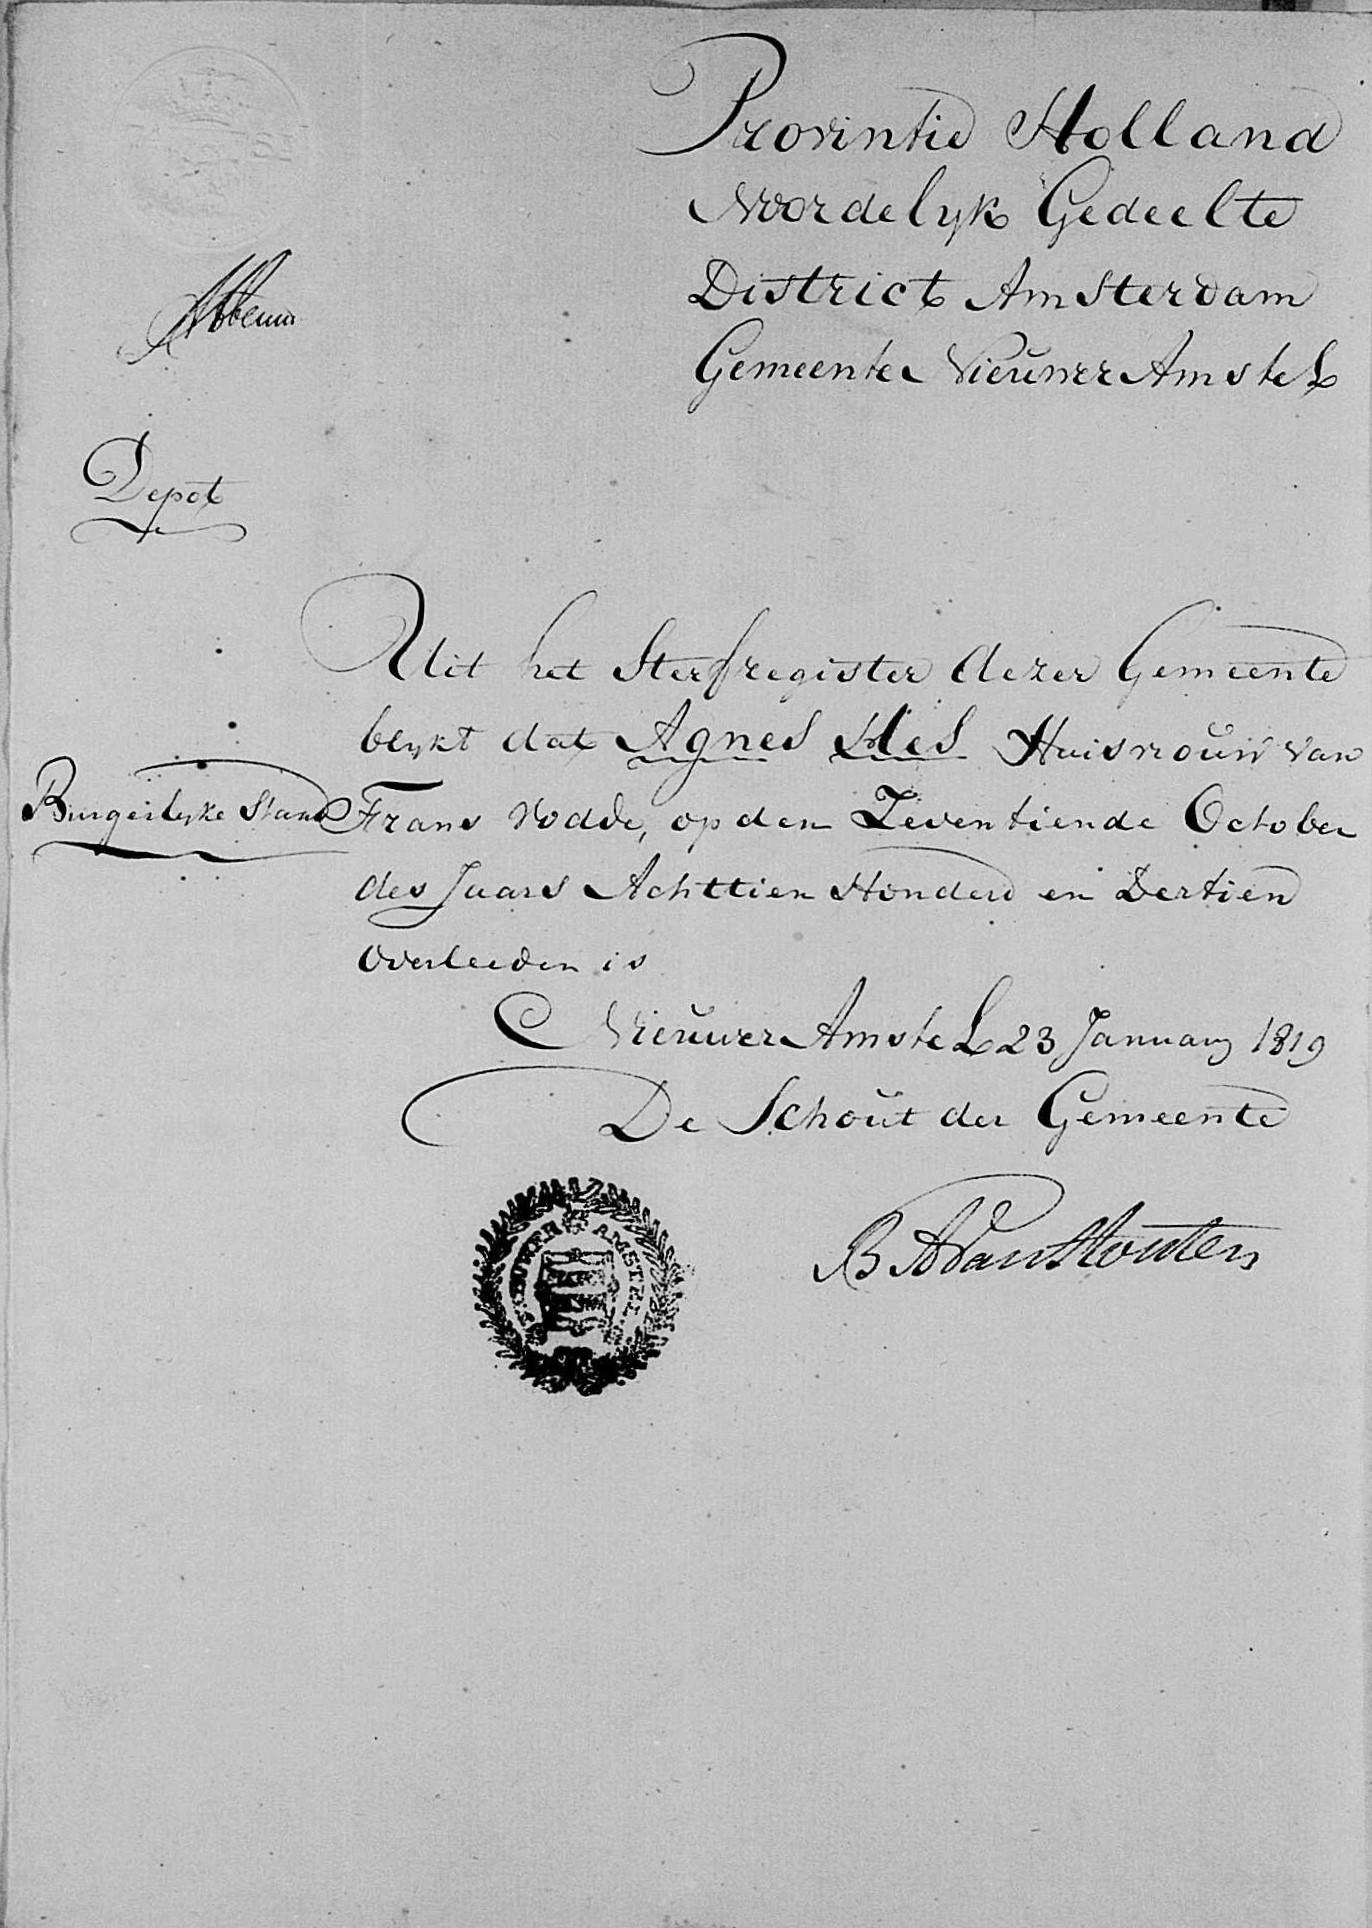 Provintie Holland
Noordelyk Gedeelte
District Amsterdam
Gemeente Nieuwer Amstel
Depot
Uit het Sterfregister dezer Gemeente
blykt dat Agnes Hes Huisvrouw van
Burgerlyke Stand
Frans Vodde, op den Zeventiende October
des Jaars Achttien Honderd en Dertien
Overleeden is
Nieuwer Amstel 23 January 1819
De Schout der Gemeente
NIEUWER AMSTEL
B A Van Houten